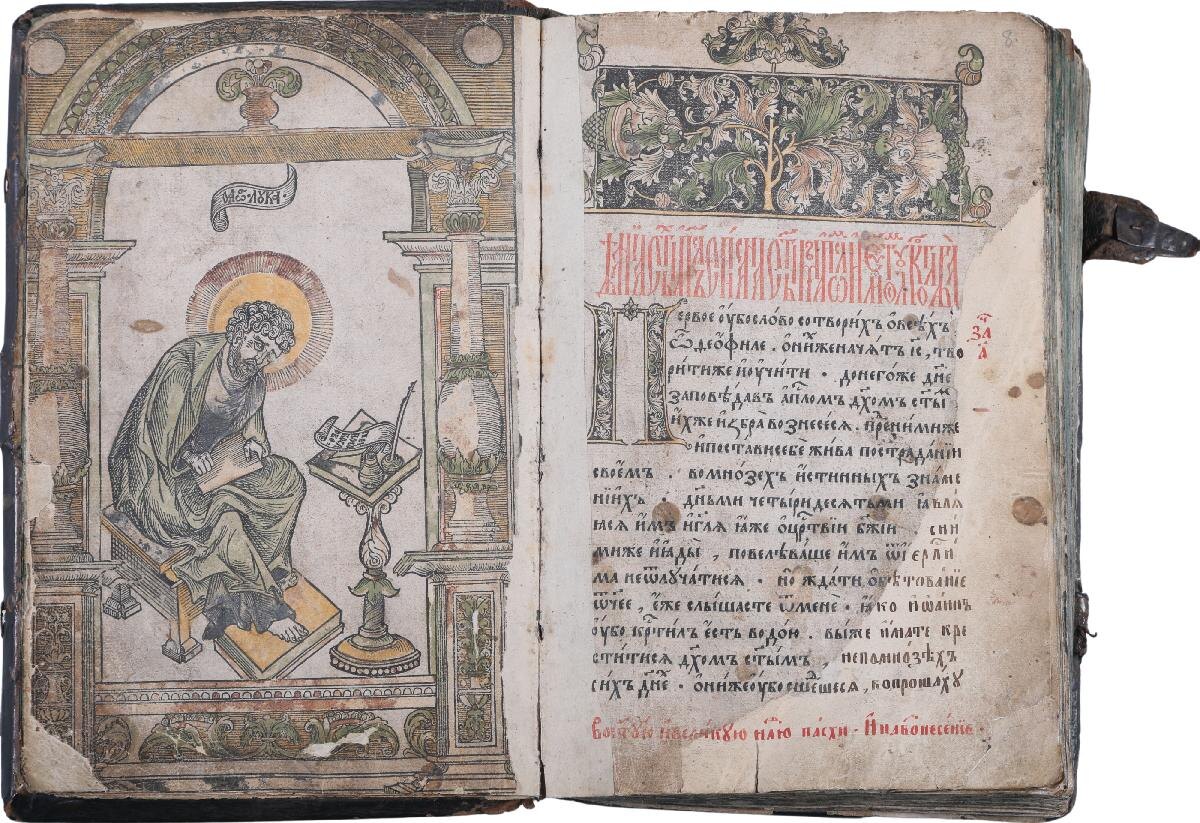 ОАГІОС ЛУКА
8
Первое оубо слово сотворихъ о всѣхъ
ѿ деѻфиле . ѻ ниже начатъ і҃с , тво
рити же и҆ оучити . до него же дн҃е
заповѣдавъ а҆пⷭ҇ломъ дх҃омъ ст҃ы
и҆хже и҆збра вознесесѧ . пред ни миже
и постави себе жива по страданїи
своемъ . во мнозехъ и҆стинныхъ знаме
нїихъ . дньми четыридесѧтьми ꙗвлѧ
ꙗсѧ и҆мъ и҆ гл҃ѧ ꙗ҆же о цр҃ствїи бж҃їи с ни
миже и҆ ꙗдый , повелѣваше и҆мъ ѿ і҆ерⷭ҇лї
ма не ѿлучатисѧ . но ждати ѡбѣтованїе
ѿч҃ее , е҆же слышасте ѿ мене . ꙗ҆ко і҆ѡаннъ
оубо крⷭ҇тилъ е҆сть водою . вы же и҆мате кре
ститисѧ дх҃омъ ст҃ымъ , не по мнозѣхъ
сихъ дн҃е . ѻ ниже оубо сшешесѧ , вопрошахꙋ
за҃
а҃
Во ст҃ꙋю и҆ великꙋю нⷣлю пасхи . И҆ на вознесенїе .